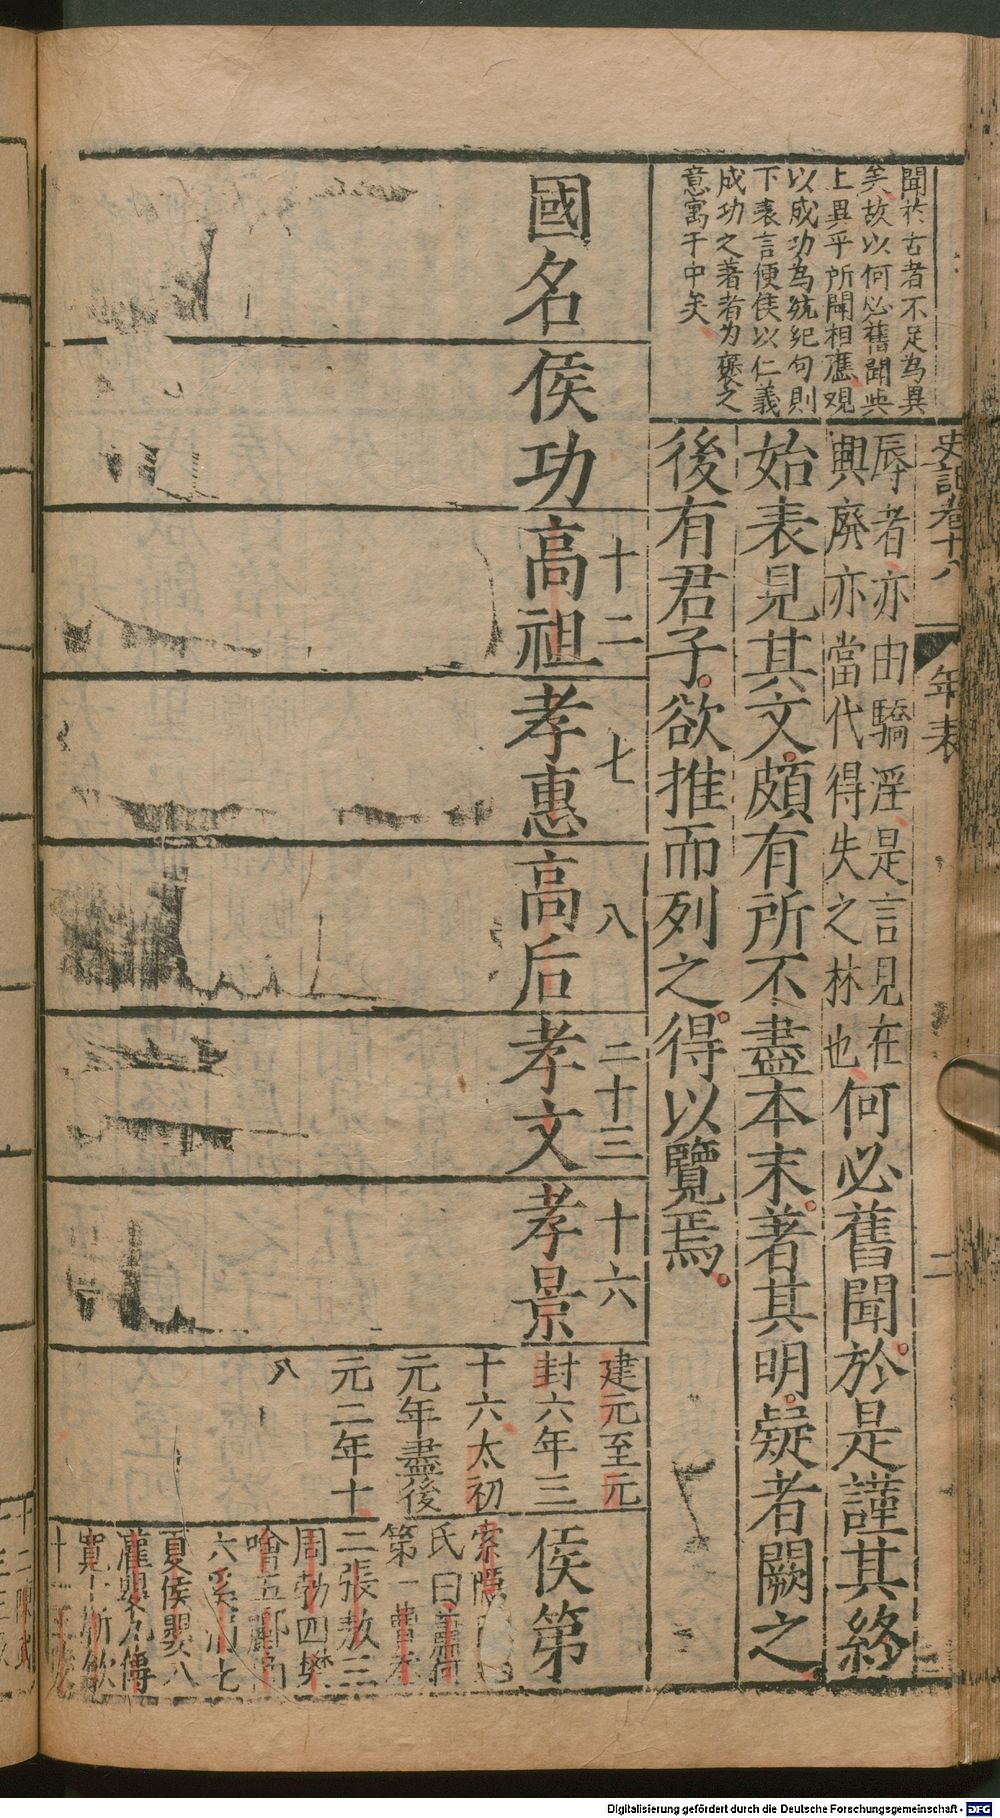 史記卷十八
年表
二
聞於古者不足為異
矣故以何必舊聞與
上異乎所聞相應观
以成功為統紀句則
下表言便侯以仁義
成功之著者为褒之
意寓于中矣
辱者亦由驕淫是言見在
興廃亦當代得失之林也
何必舊聞於是謹其終
始表見其文頗有所不盡本末著其明疑者闕之
後有君子欲推而列之得以覽焉
國名
侯功
高祖十二
孝惠七
高后八
孝文二十三
孝景十六
建元至元
封六年三
十六太初
元年盡後
元二年十
八
侯第
索隱
氏曰蕭何
第一曹參
二張敖三
周勃四樊
噲五酈商
六奚涓七
夏侯嬰八
灌嬰九傅
寬十靳歙
十一王陵
Digitalisierung gefördert durch die Deutsche Forschungsgemeinschaft - DFG